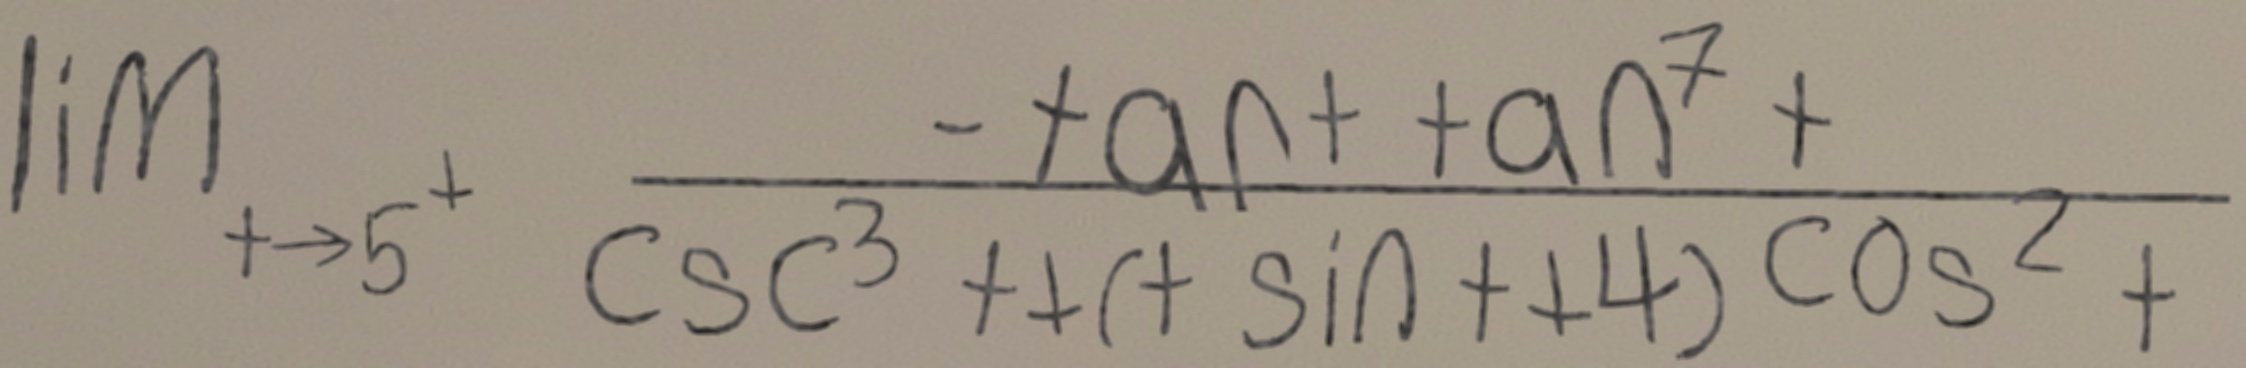 lim t→5⁺ (-tan t tan⁷ t)/(csc³ t ± (t sin t ± 4) cos² t)